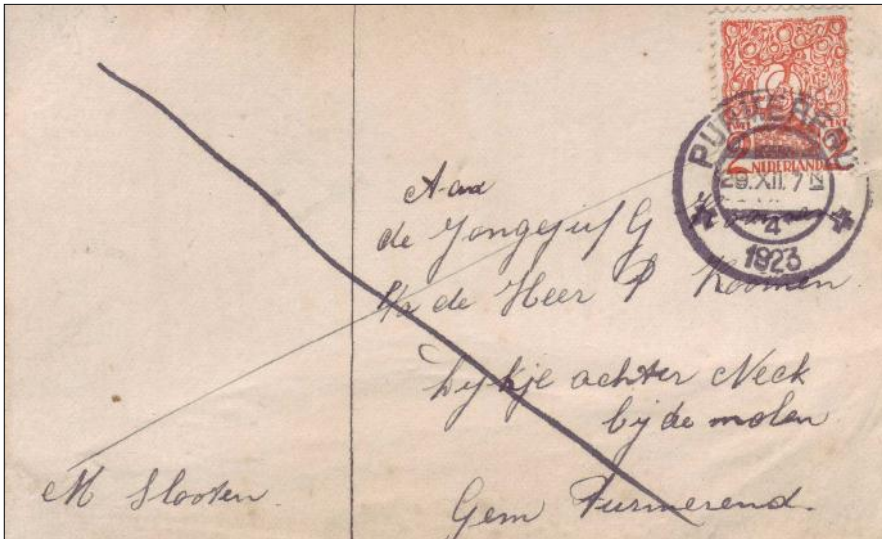 NEDERLAND
2 2
PURMEREND
9.XII.7 N
4
1923
Aan
de Jongejuf G
p/a de Heer P Koomen
Dijkje achter Neck
bij de molen
Gem Purmerend.
M Slooten